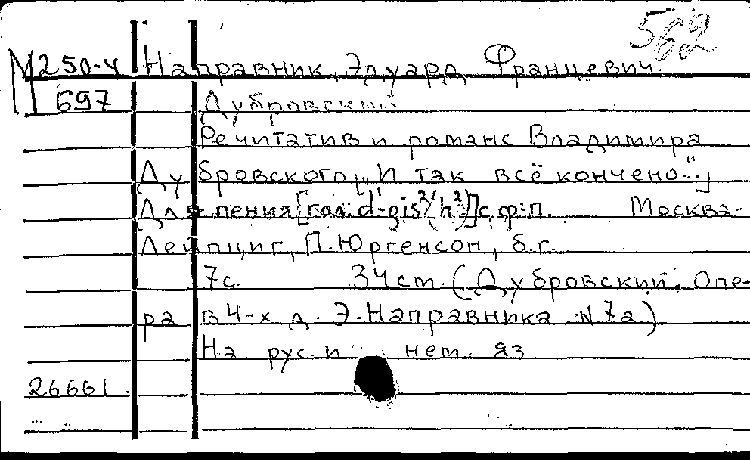 562
М 250-4 Направник, Эдуард Францевич.
697 Дубровский
Речитатив и романс Владимира
Дубровского „И так всё кончено..."]
Для пения [гол. d¹-gis²(h²)] с ф-п. Москва-
Лейпциг, П. Юргенсон, б.г.
7с. 34 см. (Дубровский. Опе-
ра в 4-х д. Э. Направника. N 7а)
На рус. и нем. яз
26661